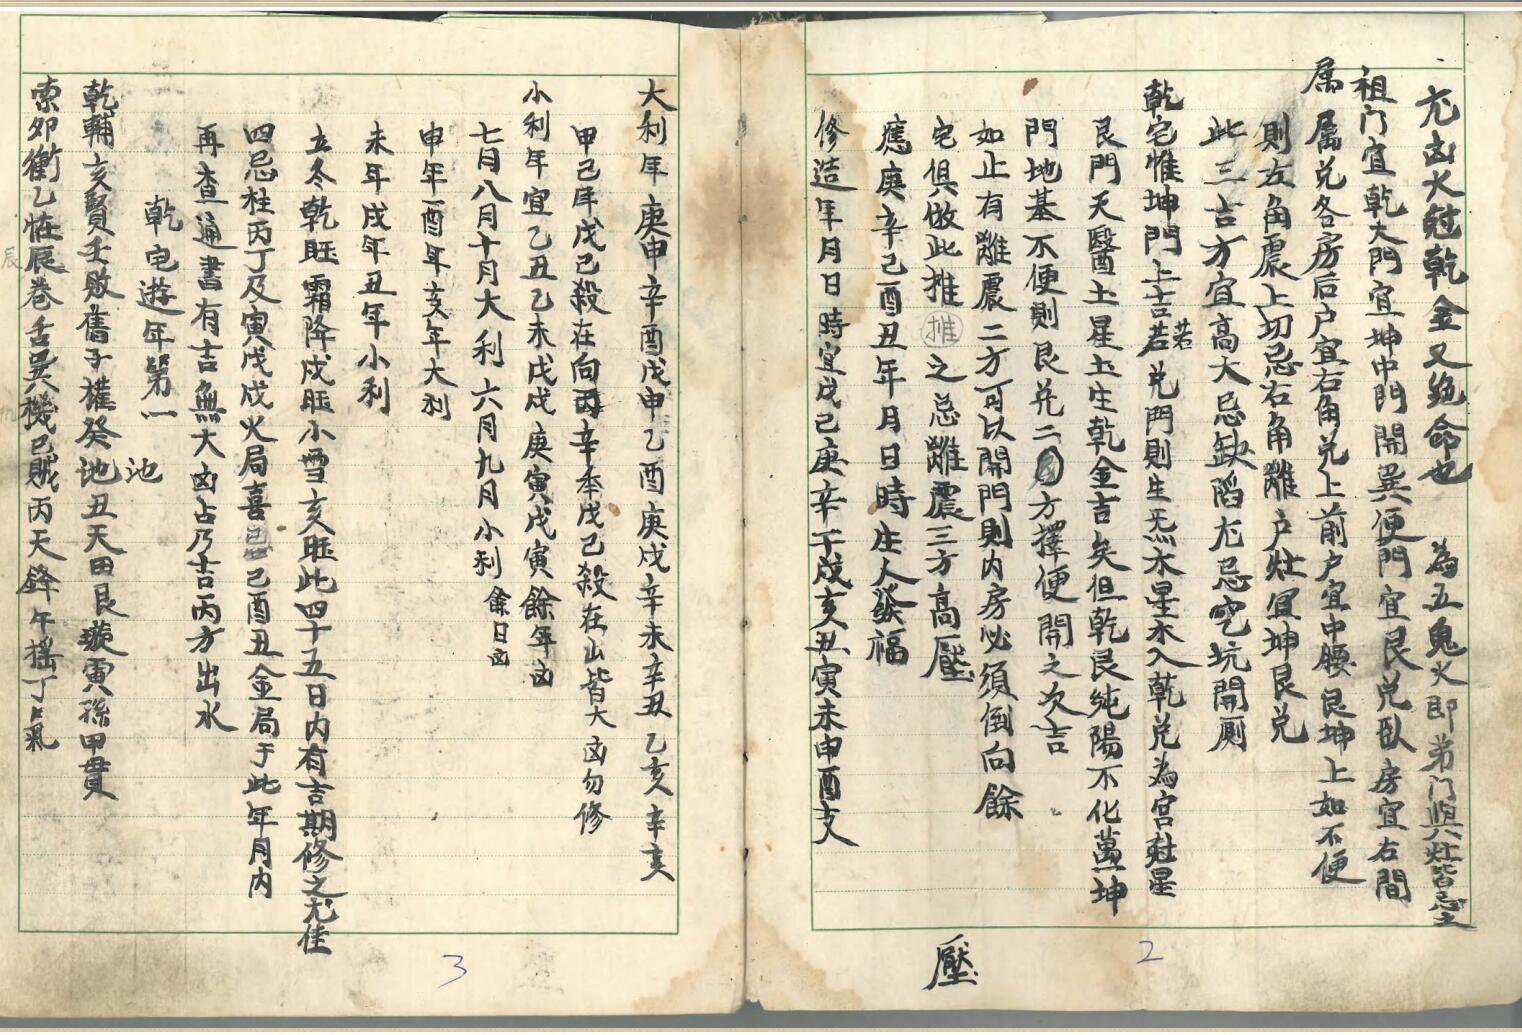 尤凶火尅乾金又绝命也 為五鬼火即弟门與灶皆忌之
祖门宜乾大門宜坤中門開巽便門宜艮兑臥房宜右間
属
属兑各房后户宜右角兑上前户宜中腰艮坤上如不便
則左角震上切忌右角離户灶宜坤艮兑
此三吉方宜高大忌缺陷尤忌空坑開厠
乾宅惟坤門上吉若兑門則生炁木星木入乾兑為宫尅星
若
艮門天醫土星土生乾金吉矣但乾艮純陽不化萬坤
門地基不便則艮兑二方擇便開之次吉
如止有離震二方可以開門則内房必須倒向餘
宅俱倣此推之忌離震三方高壓
推
應庚辛己酉丑年月日時庄人發福
修造年月日時宜戊己庚辛干戍亥丑寅未申酉支
壓
2
大利年庚申辛酉戊申乙酉庚戍辛未辛丑乙亥辛亥
甲己年戊己殺在向丙辛奉戊己殺在山皆大凶勿修
小利年宜乙丑乙未戊戍庚寅戊寅餘年凶
七月八月十月大利六月九月小利餘日凶
申年酉年亥年大利
未年戍年丑年小利
立冬乾旺霜降戍旺小雪亥旺此四十五日内有吉期修之尤佳
四忌柱丙丁及寅戊戍火局喜己酉丑金局于此年月内
再查通書有吉無大凶占乃吉丙方出水
乾宅遊年第一
池
乾輔亥賢壬敗舊子權癸地丑天田艮璇寅孫甲貫
索夘衝乙恠辰巻舌巽機巳贼丙天鋒午摇丁氣
辰
3